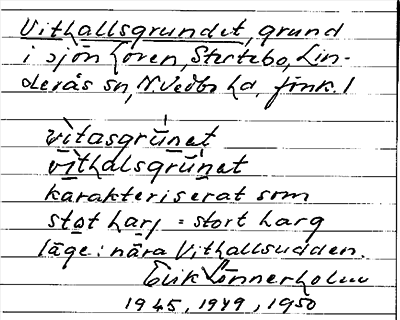 Vithallsgrundet, grund
i sjön Lören, Stertebo, Lin-
derås sn, N. Vedbo hd, fink. 1
vitasgrúnet
vithalsgrúnet
karakteriserat som
støt harj = stort harg
läge: nära Vithallsudden.
Erik Lönnerholm
1945, 1949, 1950